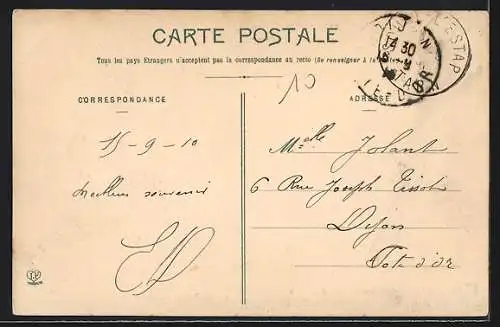 CARTE POSTALE
Tous les pays Etrangers n'acceptent pas la correspondance au recto (Se renseigner à la
CORRESPONDANCE
10
ADRESSE
15-9-10
Meilleur souvenir
6 Rue Joseph Tissot
Dijon
Côte d'Or
Melle Jolant